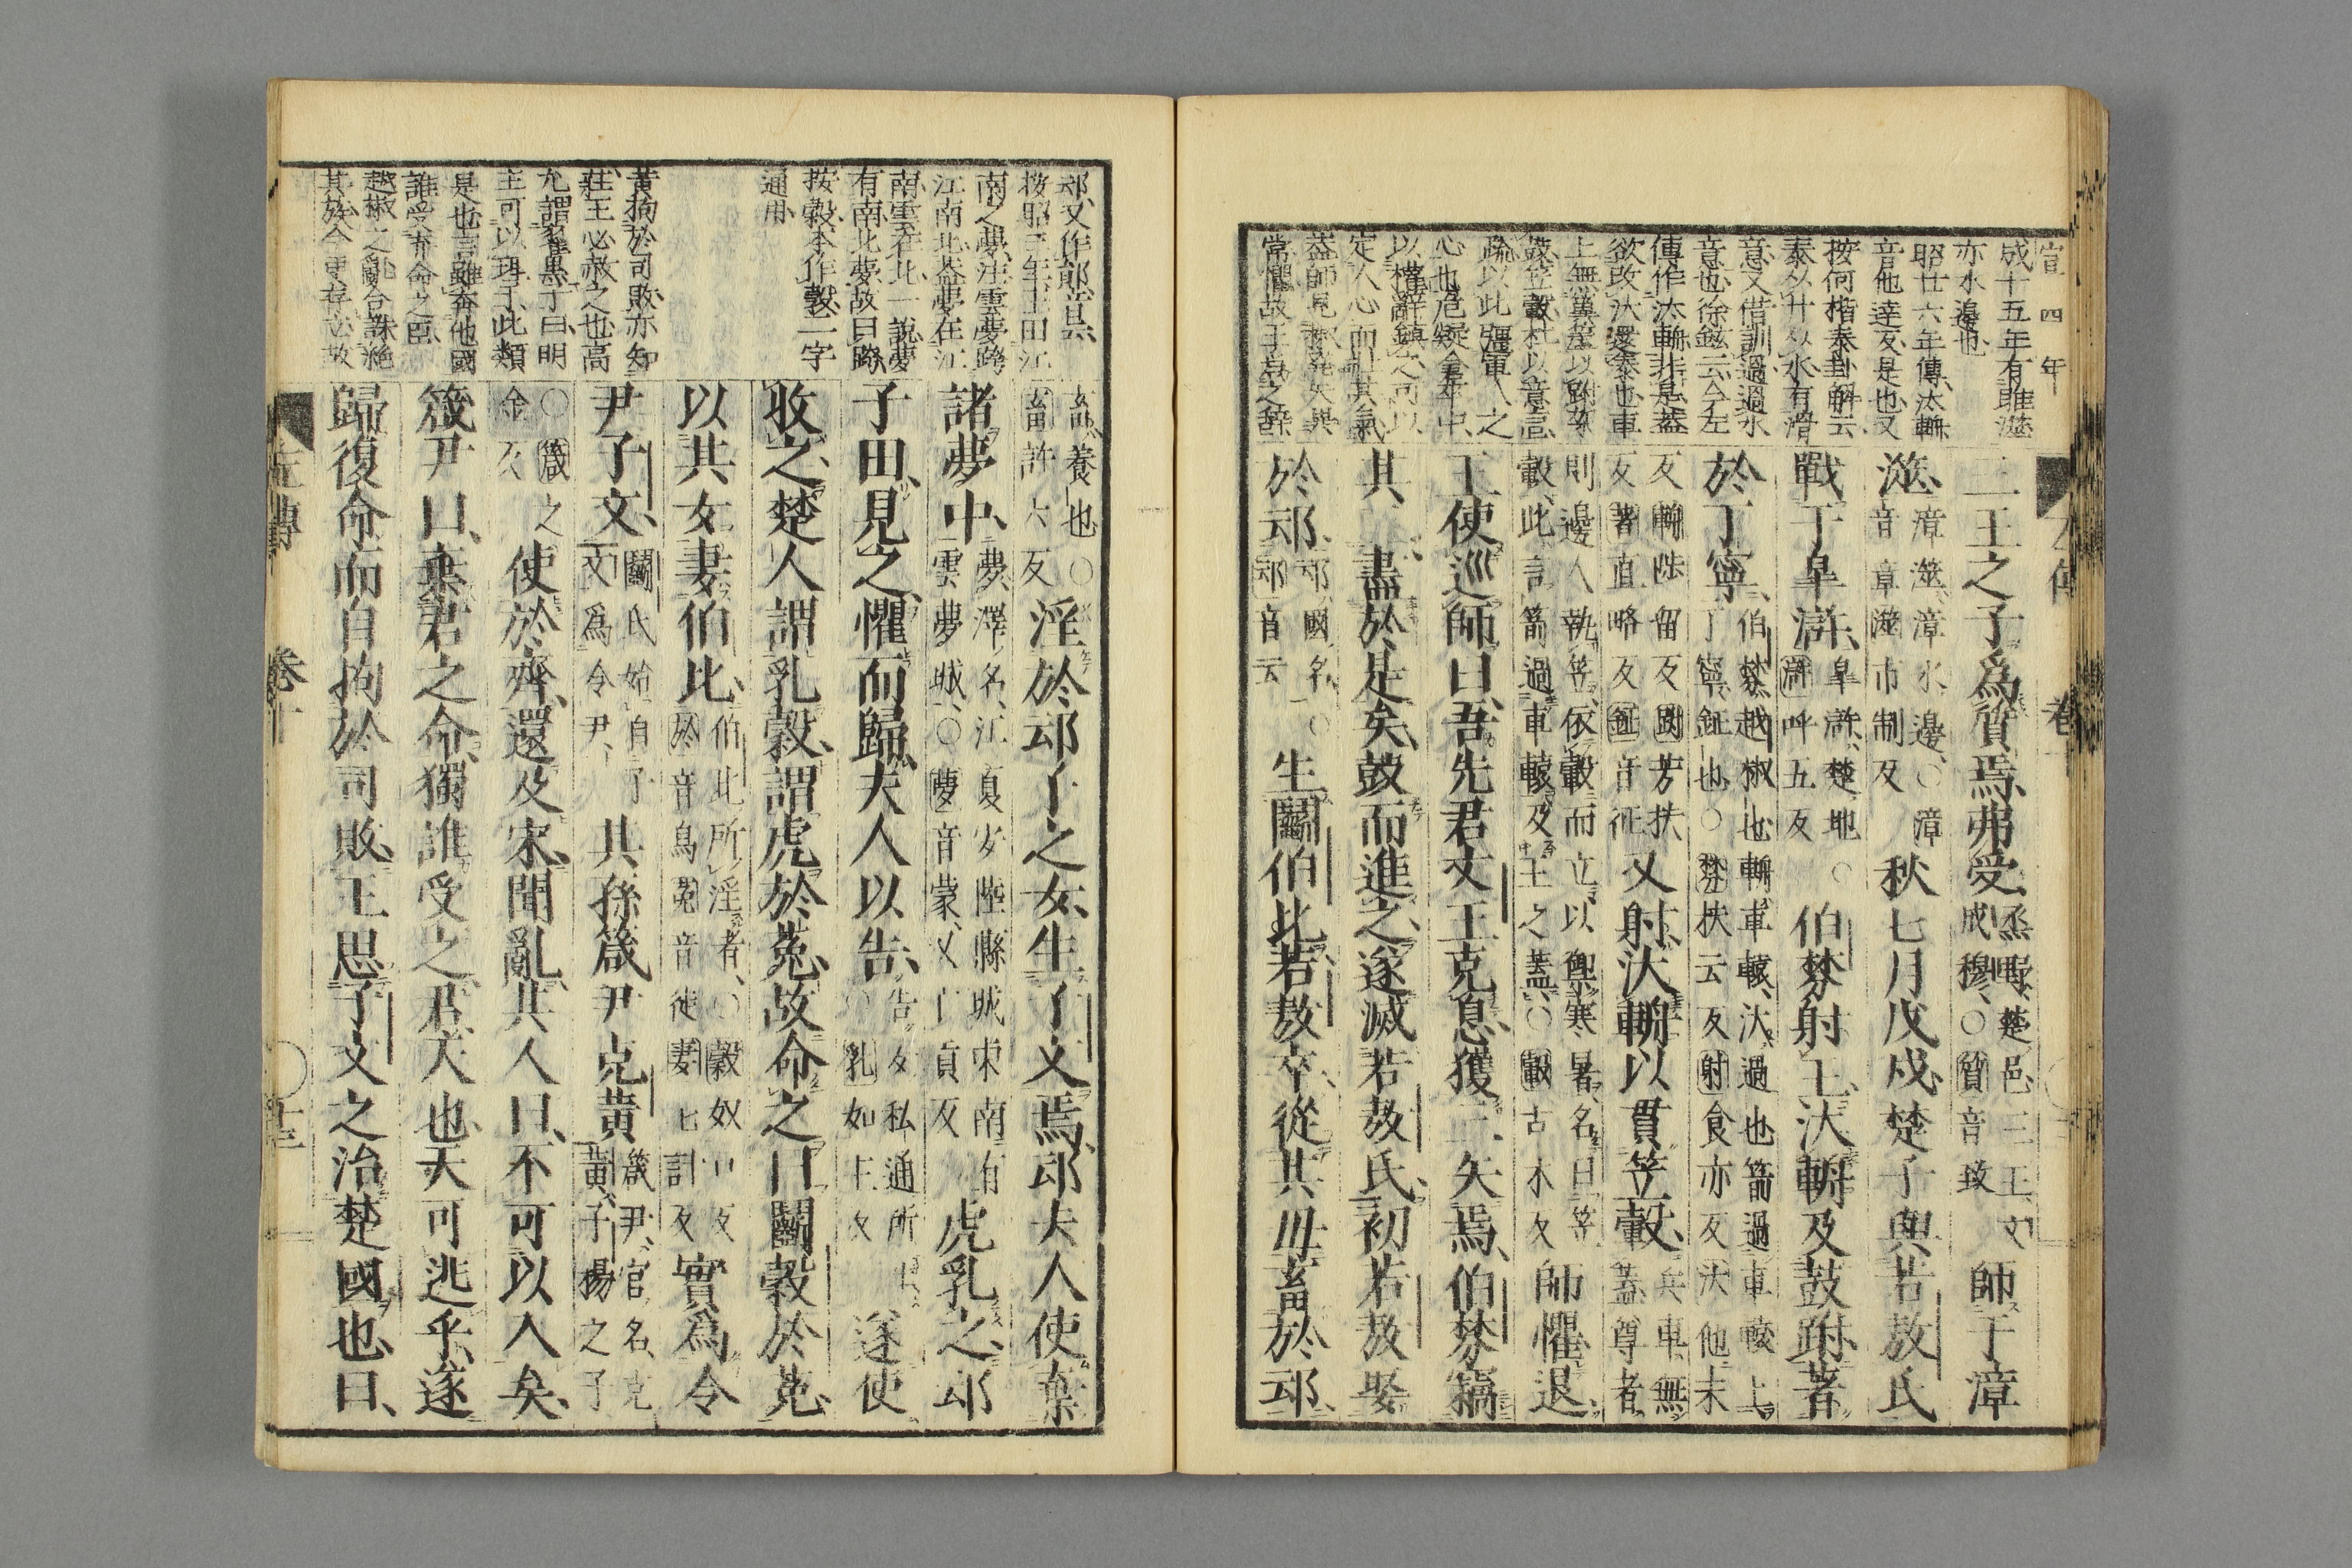 宣四年
成十五年有睢澨
亦水邊也
昭廿六年傳汰輈
音他達反是也又
按何楷泰卦解云
泰从廾从水有滑
意又借訓過過水
意也徐鉉云今左
傳作汰輈非是蓋
欲改汰還泰也車
上無
笠轂杜以意言
疏以此彊軍人之
心也危疑
以權辭鎮之可以
定人心而
蓋師見
常懼故王言之辞
左傳 卷十
三王之子爲質焉弗受
烝野楚邑三王文
成穆○質音致
師于漳
澨
漳澨漳水邊○漳
音章澨市制反
秋七月戊戌楚子與若敖氏
戰于皐滸
皐滸楚地○
滸呼五反
伯棼射王汰輈及鼓跗著
於丁寧
伯棼越椒也輈車轅汰過也箭過車轅上
丁寧鉦也○棼扶云反射食亦反汰他末
反輈陟留反跗芳扶
反著直略反鉦音征
又射汰輈以貫笠轂
兵車無
蓋尊者
則邊人執笠依轂而立以禦寒暑名曰笠
轂此言箭過車轅及王之蓋○轂古木反
師懼退
王使巡師曰吾先君文王克息獲三矢焉伯棼竊
其二盡於是矣鼓而進之遂滅若敖氏初若敖娶
於䢵
䢵國名○
䢵音云
生鬭伯比若敖卒從其母畜於䢵
䢵又作鄖音云
按昭三年王田江
南之夢注雲夢跨
江南北蓋夢在江
南雲在北一說夢
有南北夢故曰跨
按穀本作㝅二字
通用
黃拘於司敗亦知
莊王必赦之也高
允謂翟黒子曰明
主可以理干此類
是也言雖奔他國
誰受弃命之臣
越椒之亂合誅絶
其族今更存立故
畜養也○
畜許六反
淫於䢵子之女生子文焉䢵夫人使棄
諸夢中
夢澤名江夏安陸縣城東南有
雲夢城○夢音蒙又亡貢反
虎乳之䢵
子田見之懼而歸夫人以告
告女私通所生
○乳如主反
遂使
收之楚人謂乳穀謂虎於菟故命之曰鬭穀於菟
以其女妻伯比
伯比所淫者○穀奴口反
於音烏菟音徒妻七計反
實爲令
尹子文
鬭氏始自子
文爲令尹
其孫箴尹克黃
箴尹官名克
黃子揚之子
○箴之
金反
使於齊還及宋聞亂其人曰不可以入矣
箴尹曰棄君之命獨誰受之君天也天可逃乎遂
歸復命而自拘於司敗王思子文之治楚國也曰
左傳 卷十 〇十三